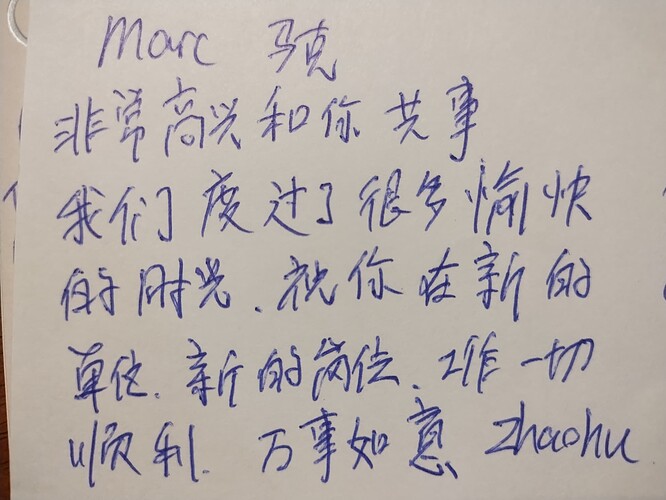 Marc 马克
非常高兴和你共事
我们度过了很多愉快
的时光、祝你在新的
单位、新的岗位、工作一切
顺利、万事如意 Zhaohu